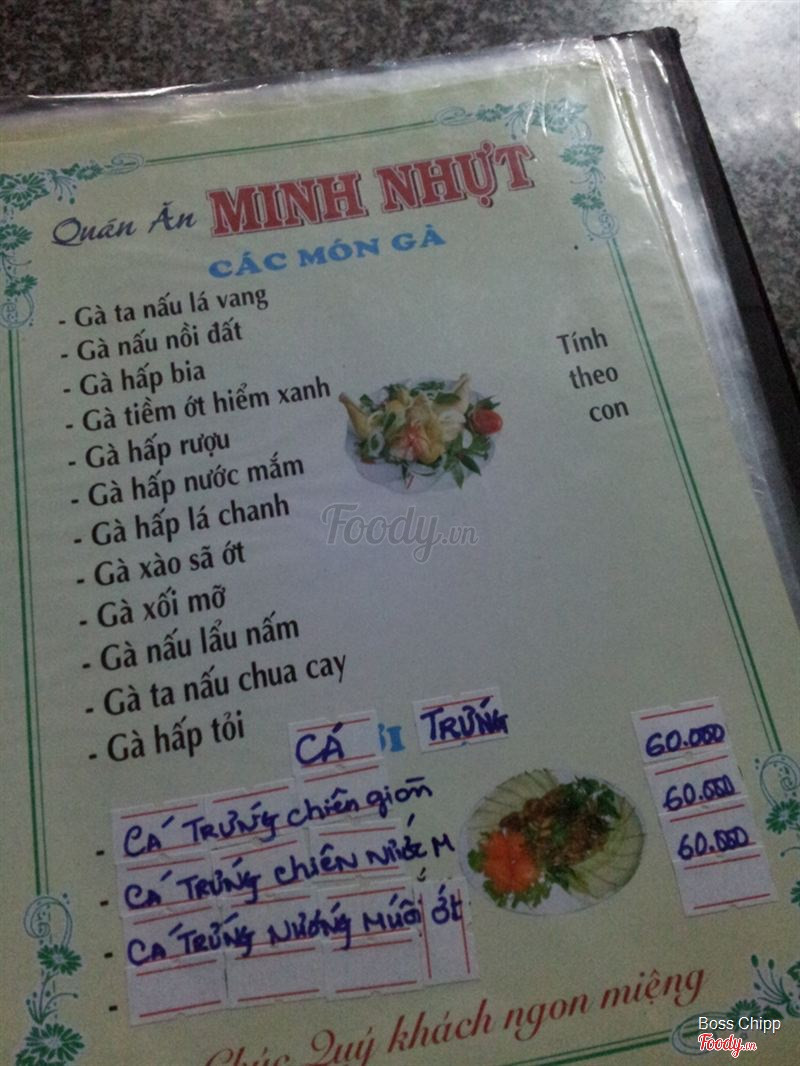 Quán Ăn MINH NHỰT
CÁC MÓN GÀ
- Gà ta nấu lá vang
- Gà nấu nồi đất
- Gà hấp bia
- Gà tiềm ớt hiểm xanh
- Gà hấp rượu
- Gà hấp nước mắm
- Gà hấp lá chanh
- Gà xào sã ớt
- Gà xối mỡ
- Gà nấu lẩu nấm
- Gà ta nấu chua cay
- Gà hấp tỏi
Tính
theo
con
Foody.vn
CÁ TRỨNG
- CÁ TRỨNG chiên giòn 60.000
- CÁ TRỨNG chiên NƯỚC M 60.000
- CÁ TRỨNG NƯỚNG MUỐI ỚT 60.000
-
Chúc Quý khách ngon miệng
Boss Chipp
Foody.vn